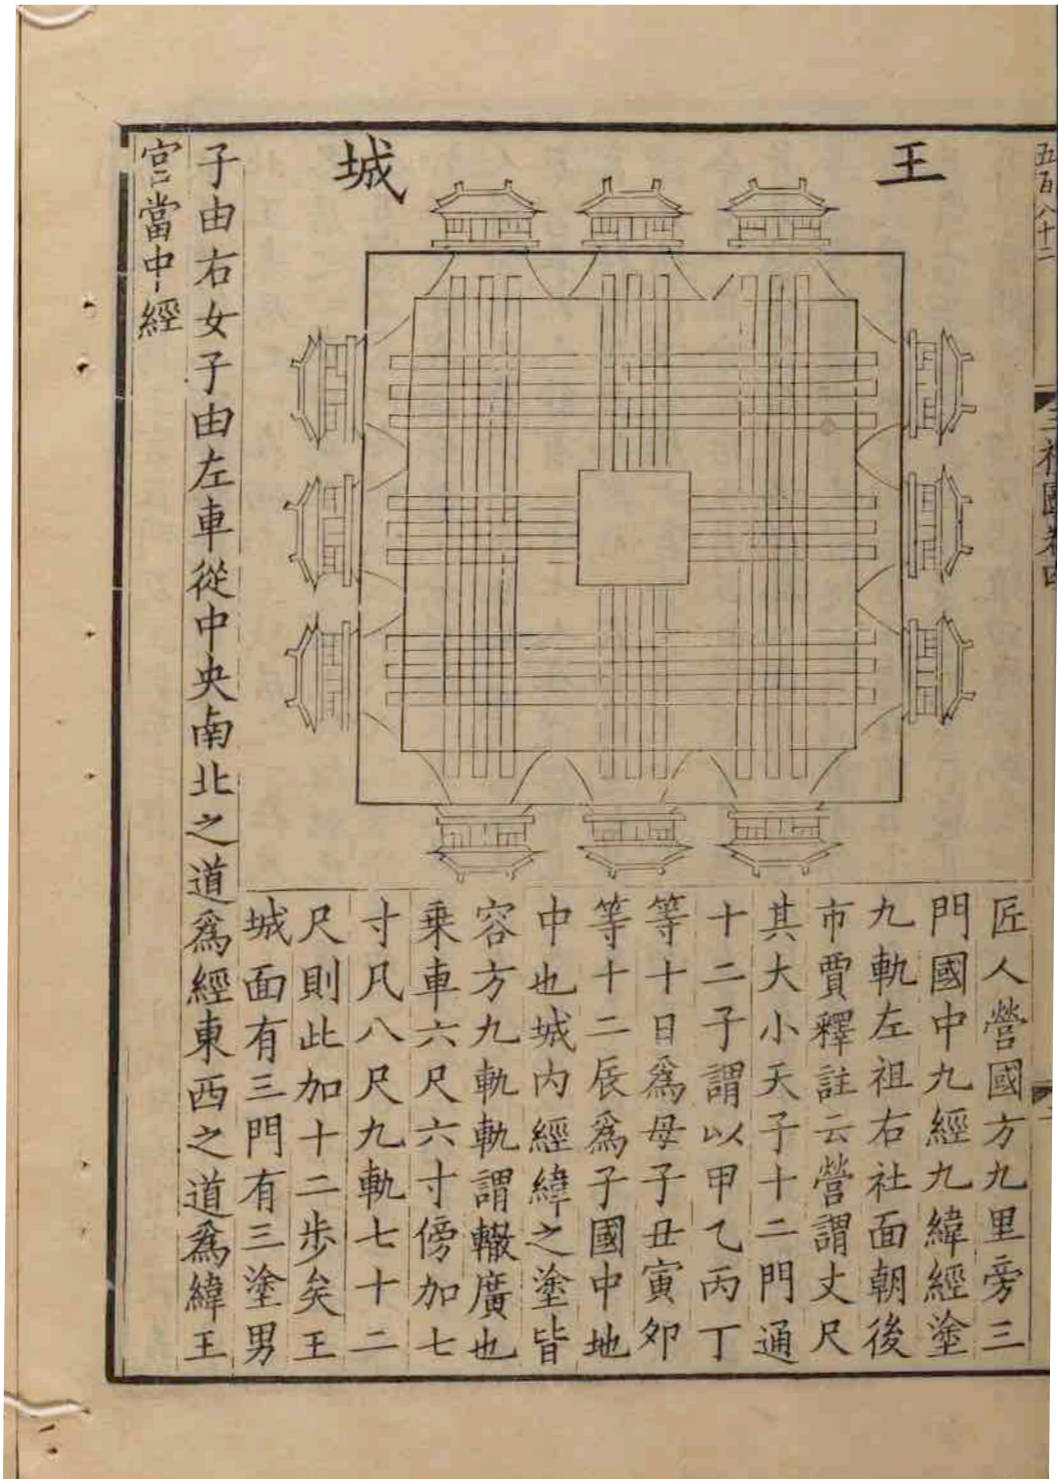 五百八十二
三禮圖卷四
王城
匠人營國方九里旁三
門國中九經九緯經塗
九軌左祖右社面朝後
市賈釋註云營謂丈尺
其大小天子十二門通
十二子謂以甲乙丙丁
等十日爲母子丑寅卯
等十二辰爲子國中地
中也城内經緯之塗皆
容方九軌軌謂轍廣也
乗車六尺六寸傍加七
寸凡八尺九軌七十二
尺則此加十二步矣王
城面有三門有三塗男
子由右女子由左車從中央南北之道爲經東西之道爲緯王
宮當中經